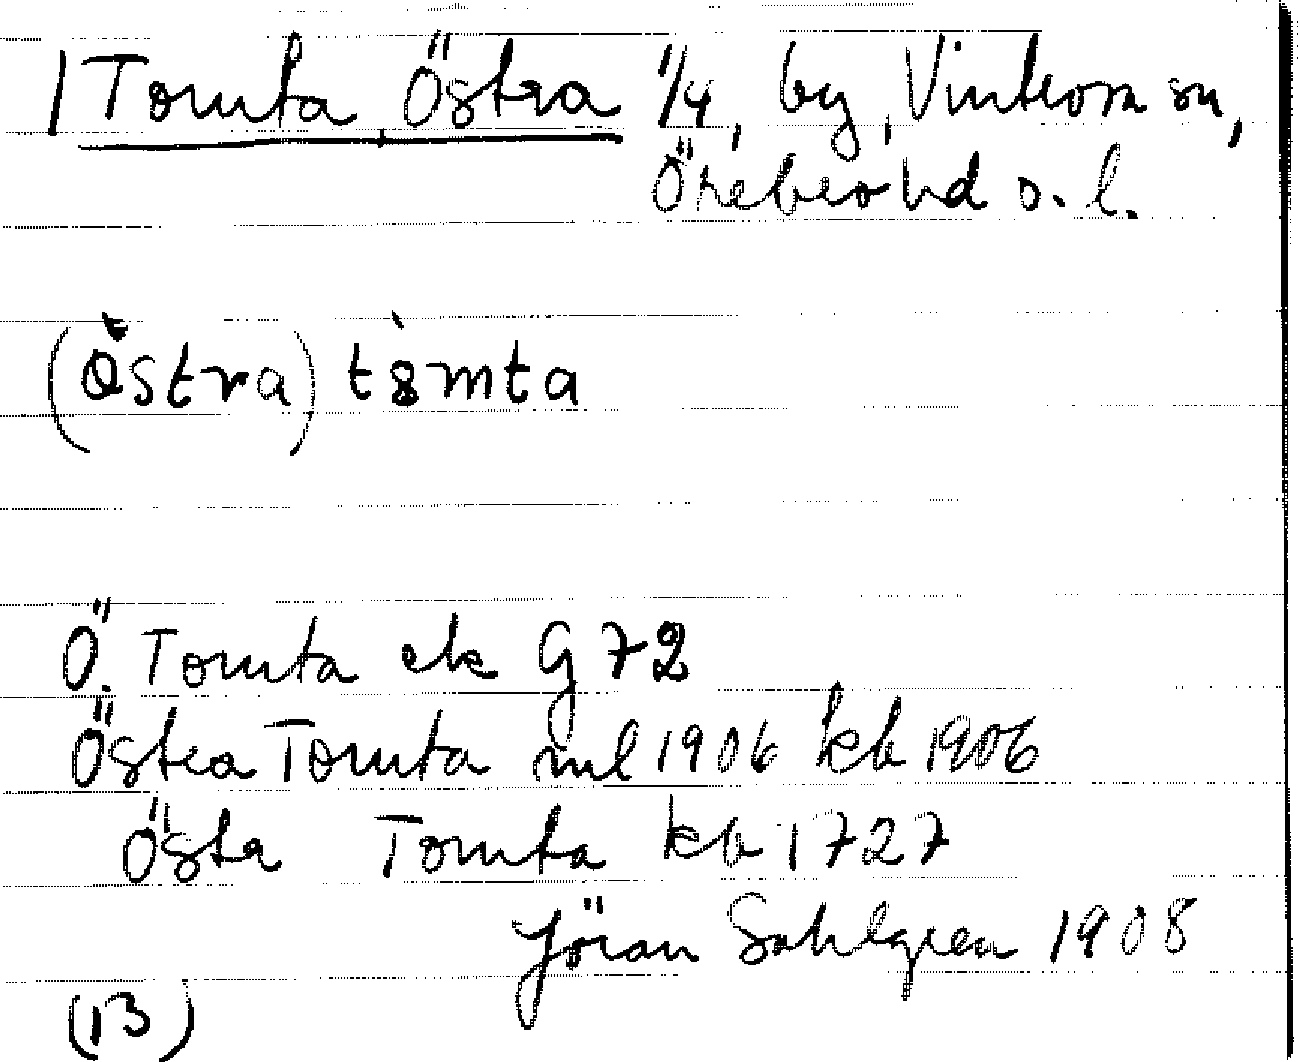 1 Tomta Östra 1/4, by, Vintrosa sn,
Örebro hd o. l.
(östra) tòmta
Ö. Tomta ek G 72
Östra Tomta ml 1906 kb 1906
Östa Tomta kb 1727
Jöran Sahlgren 1908
(13)